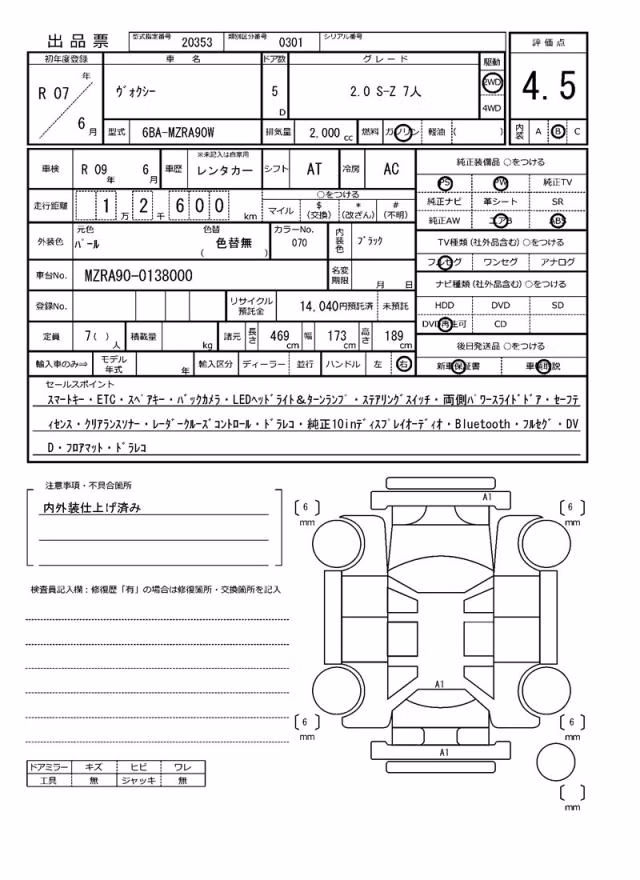 出品票 型式指定番号 20353 類別区分番号 0301 シリアル番号
評価点
4.5
内装 A B C
初年度登録 車名 ドア数 グレード 駆動
R 07 年 6 月 ヴォクシー 5 D 2.0 S-Z 7人 2WD 4WD
型式 6BA-MZRA90W 排気量 2,000 cc 燃料 ガソリン 軽油 ( )
車検 R 09 年 6 月 車歴 ※未記入は自家用 レンタカー シフト AT 冷房 AC
走行距離 1 万 2 千 6 0 0 km ○をつける
マイル $ (交換) * (改ざん) # (不明)
外装色 元色 パール 色替 色替無 ( ) カラーNo. 070 内装色 ブラック
車台No. MZRA90-0138000 名変期限 月 日
登録No. リサイクル預託金 14,040円預託済 未預託
定員 7( ) 人 積載量 kg 諸元 長さ 469 cm 幅 173 cm 高さ 189 cm
輸入車のみ⇒ モデル年式 年 輸入区分 ディーラー 並行 ハンドル 左 右
純正装備品 ○をつける
PS PW 純正TV
純正ナビ 革シート SR
純正AW エアB ABS
TV種類(社外品含む)○をつける
フルセグ ワンセグ アナログ
ナビ種類(社外品含む)○をつける
HDD DVD SD
DVD再生可 CD
後日発送品 ○をつける
新車保証書 車輌取説
セールスポイント
スマートキー・ETC・スペアキー・バックカメラ・LEDヘッドライト&ターンランプ・ステアリングスイッチ・両側パワースライドドア・セーフテ
ィセンス・クリアランスソナー・レーダークルーズコントロール・ドラレコ・純正10inディスプレイオーディオ・Bluetooth・フルセグ・DV
D・フロアマット・ドラレコ
注意事項・不具合箇所
内外装仕上げ済み
検査員記入欄:修復歴「有」の場合は修復箇所・交換箇所を記入
ドアミラー キズ ヒビ ワレ
工具 無 ジャッキ 無
A1
6 mm
6 mm
A1
6 mm
6 mm
A1
mm